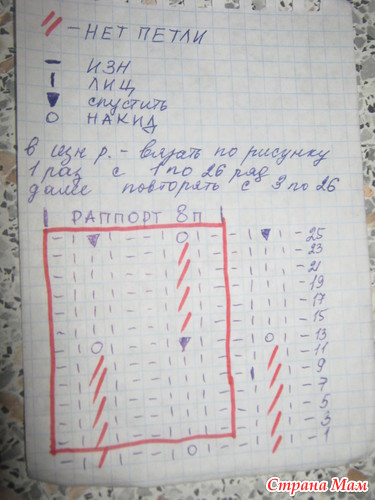 - НЕТ ПЕТЛИ
- ИЗН
| ЛИЦ
▼ СПУСТИТЬ
○ НАКИД
В изн р. - вязать по рисунку
1 раз с 1 по 26 ряд
далее повторять с 3 по 26
РАППОРТ 8п
- 25
- 23
- 21
- 19
- 17
- 15
- 13
- 11
- 9
- 7
- 5
- 3
- 1
Страна Мам